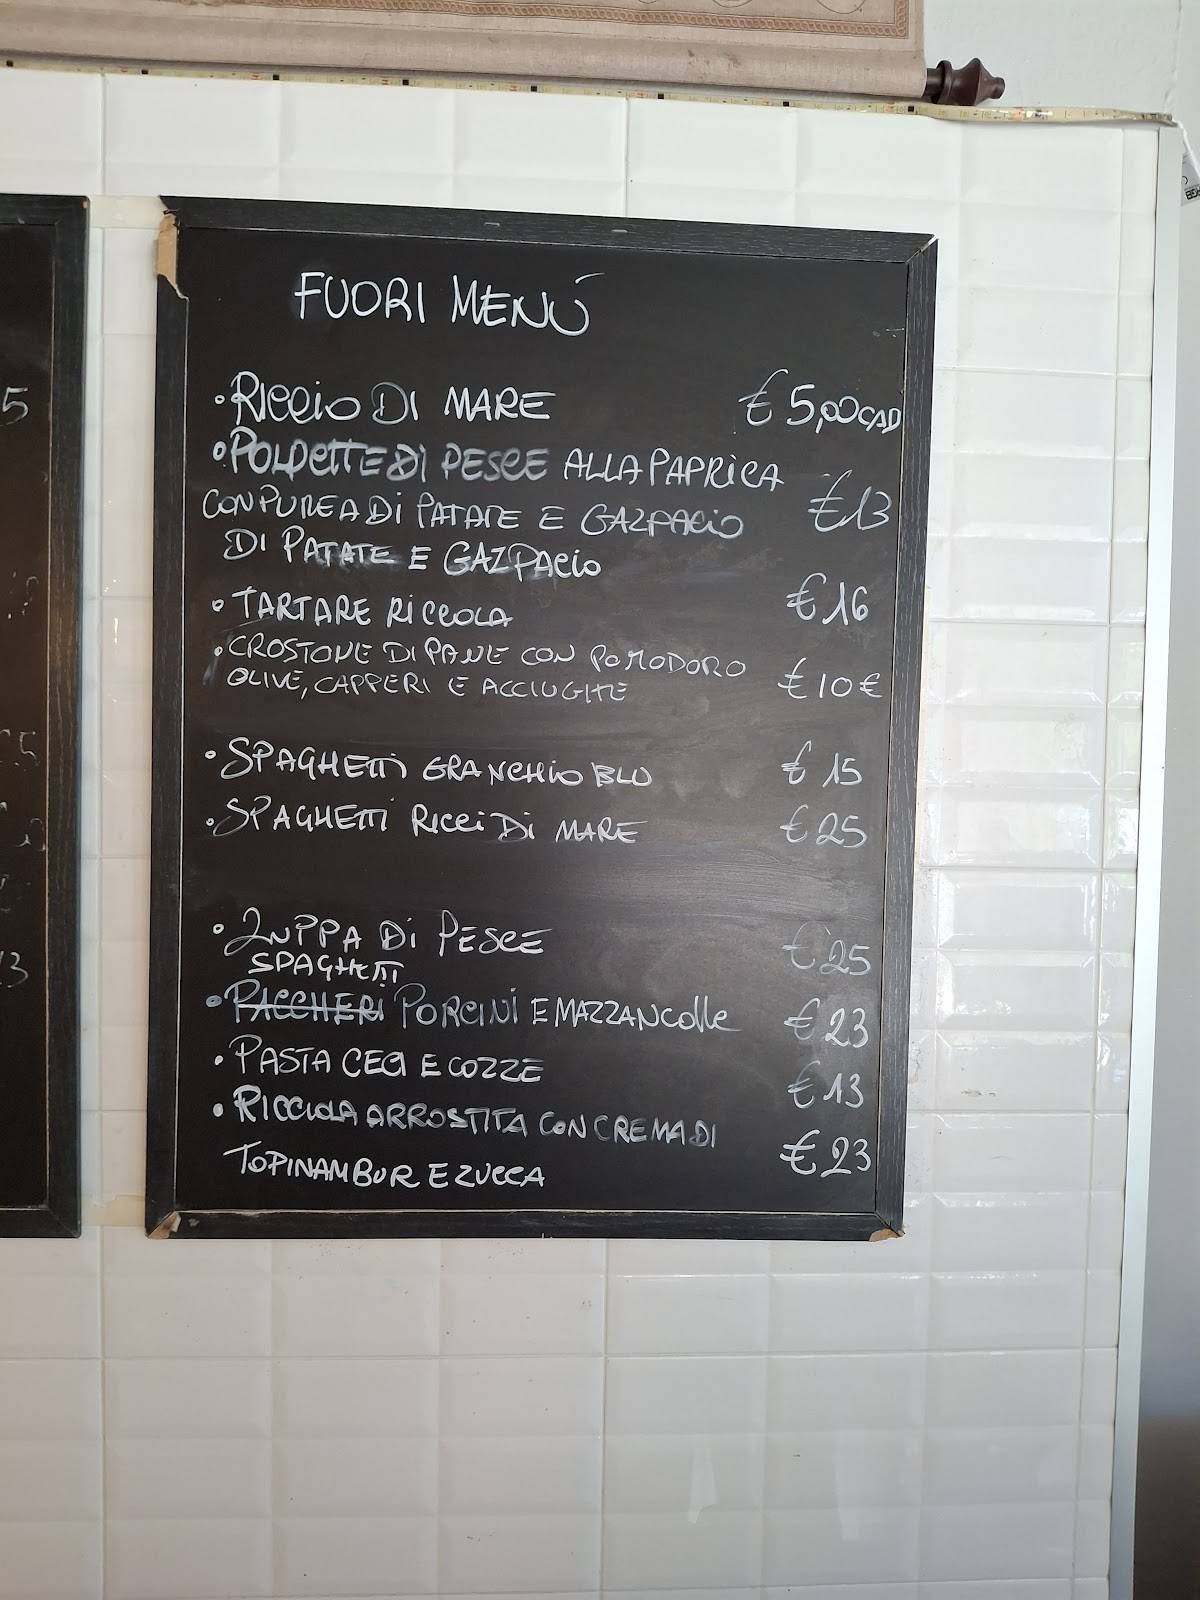 FUORI MENÚ
• RICCIO DI MARE € 5,00 CAD
• POLPETTE DI PESCE ALLA PAPRICA
CON PUREA DI PATATE E GAZPACIO € 13
DI PATATE E GAZPACIO
• TARTARE RICCIOLA € 16
• CROSTONE DI PANE CON POMODORO
OLIVE, CAPPERI E ACCIUGHE € 10 €
• SPAGHETTI GRANCHIO BLU € 15
• SPAGHETTI RICCI DI MARE € 25
• ZUPPA DI PESCE € 25
SPAGHETTI
• PACCHERI PORCINI E MAZZANCOLLE € 23
• PASTA CECI E COZZE € 13
• RICCIOLA ARROSTITA CON CREMA DI
TOPINAMBUR E ZUCCA € 23
5
5
3